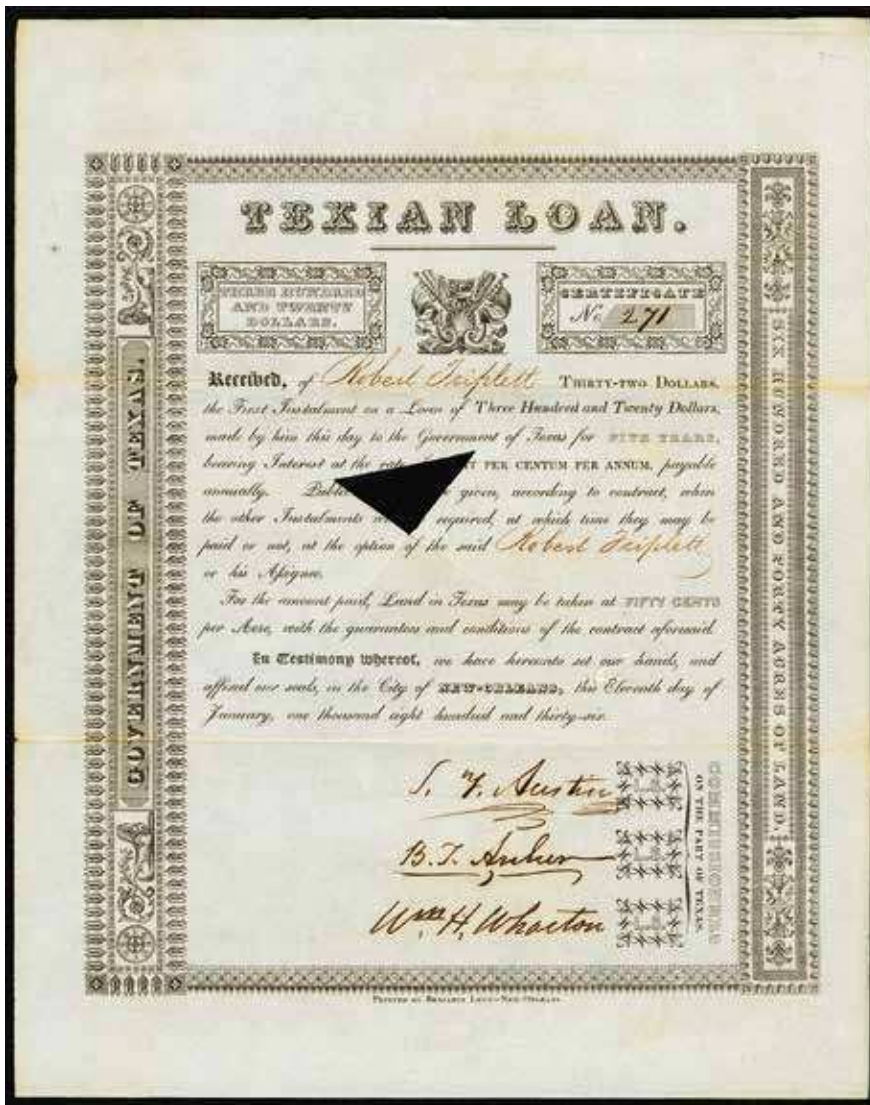 TEXIAN LOAN.
THREE HUNDRED
AND TWENTY
DOLLARS.
CERTIFICATE
No. 271
Received, of Robert Triplett THIRTY-TWO DOLLARS,
the First Instalment on a Loan of Three Hundred and Twenty Dollars,
made by him this day to the Government of Texas for FIVE YEARS,
bearing Interest at the rate PER CENTUM PER ANNUM, payable
annually. given, according to contract, when
the other Instalments required, at which time they may be
paid or not, at the option of the said Robert Triplett
or his Assignee.
For the amount paid, Land in Texas may be taken at FIFTY CENTS
per Acre, with the guarantees and conditions of the contract aforesaid.
In Testimony whereof, we have hereunto set our hands, and
affixed our seals, in the City of NEW-ORLEANS, this Eleventh day of
January, one thousand eight hundred and thirty-six.
S. F. Austin
B. T. Archer
Wm. H. Wharton
COMMISSIONERS
ON THE PART OF TEXAS.
GOVERNMENT OF TEXAS.
SIX HUNDRED AND FORTY ACRES OF LAND.
PRINTED BY BENJAMIN LEVY—NEW-ORLEANS